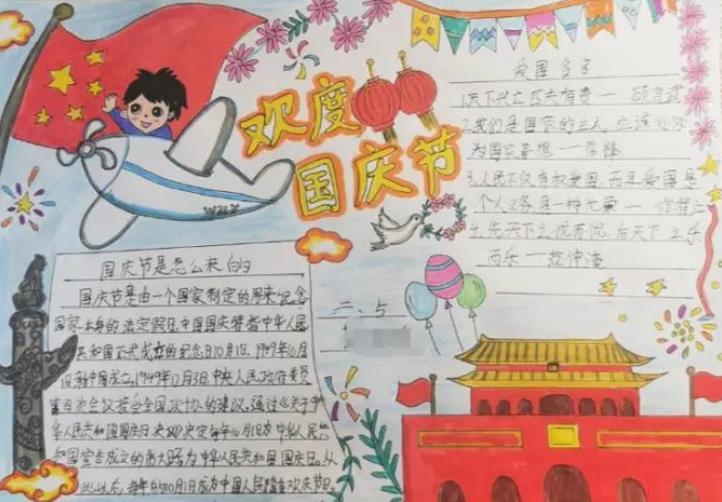 欢度
国庆节
爱国名言
1.天下兴亡匹夫有责一
2.我们是国家的主人,应该处处
为国家着想一雷锋
3.人民不仅有权爱国,而且爱国是
个人义务,是一种光荣一
4.先天下之忧而忧,后天下之乐
而乐一范仲淹
二、5
国庆节是怎么来的
国庆节是由一个国家制定的用来纪念
国家本身的法定假日,中国国庆特指中华人民
共和国正式成立的纪念日10月1日,1949年10月
1日新中国成立,1949年12月3日中央人民政府委员
会四次会议接受全国政协的建议,通过
华人民共和国国庆日决定每年10月1日为中华人民共
和国宣告成立的伟大日为中华人民共和国国庆日。从
此以后,每年的10月1日成为中国人民隆重欢庆节日